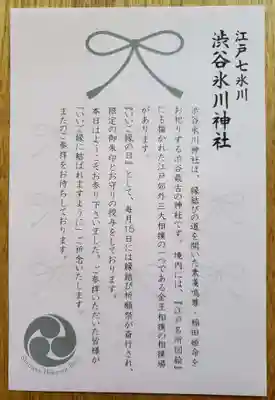 江戸七氷川
渋谷氷川神社
渋谷氷川神社は、縁結びの道を開いた素盞鳴尊・稲田姫命を
お祀りする渋谷最古の神社です。境内には、『江戸名所図絵』
にも描かれた江戸郊外三大相撲の一つである金王相撲の相撲場
があります。
『いいご縁の日』として、毎月15日には縁結び祈願祭が斎行され、
限定の御朱印とお守りの授与をしております。
本日はよーこそお参り下さいました。ご参拝いただいた皆様が
『いいご縁に結ばれますように』ご祈念いたします。
またのご参拝をお待ちしております。
Shibuya Hikawa